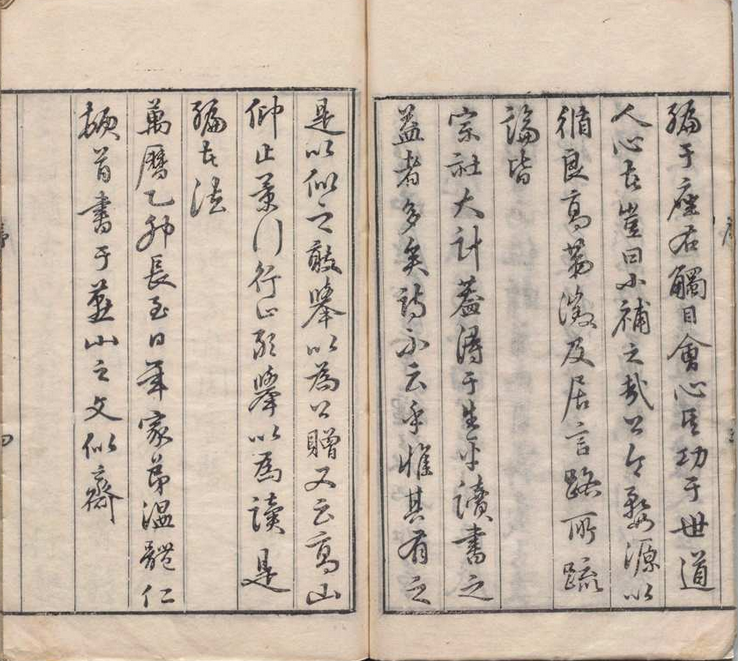 編于座右觸目會心其功于世道
人心者豈曰小補之哉公令婺源以
循良高等徵及居言路所疏
論皆
宗社大計蓋得于生平讀書之
益者多矣詩不云乎惟其有之
是以似之敢舉以為公贈又云高山
仰止景行行止敢舉以為讀是
編者法
萬曆乙卯長至日年家弟溫體仁
頓首書于燕山之文似齋